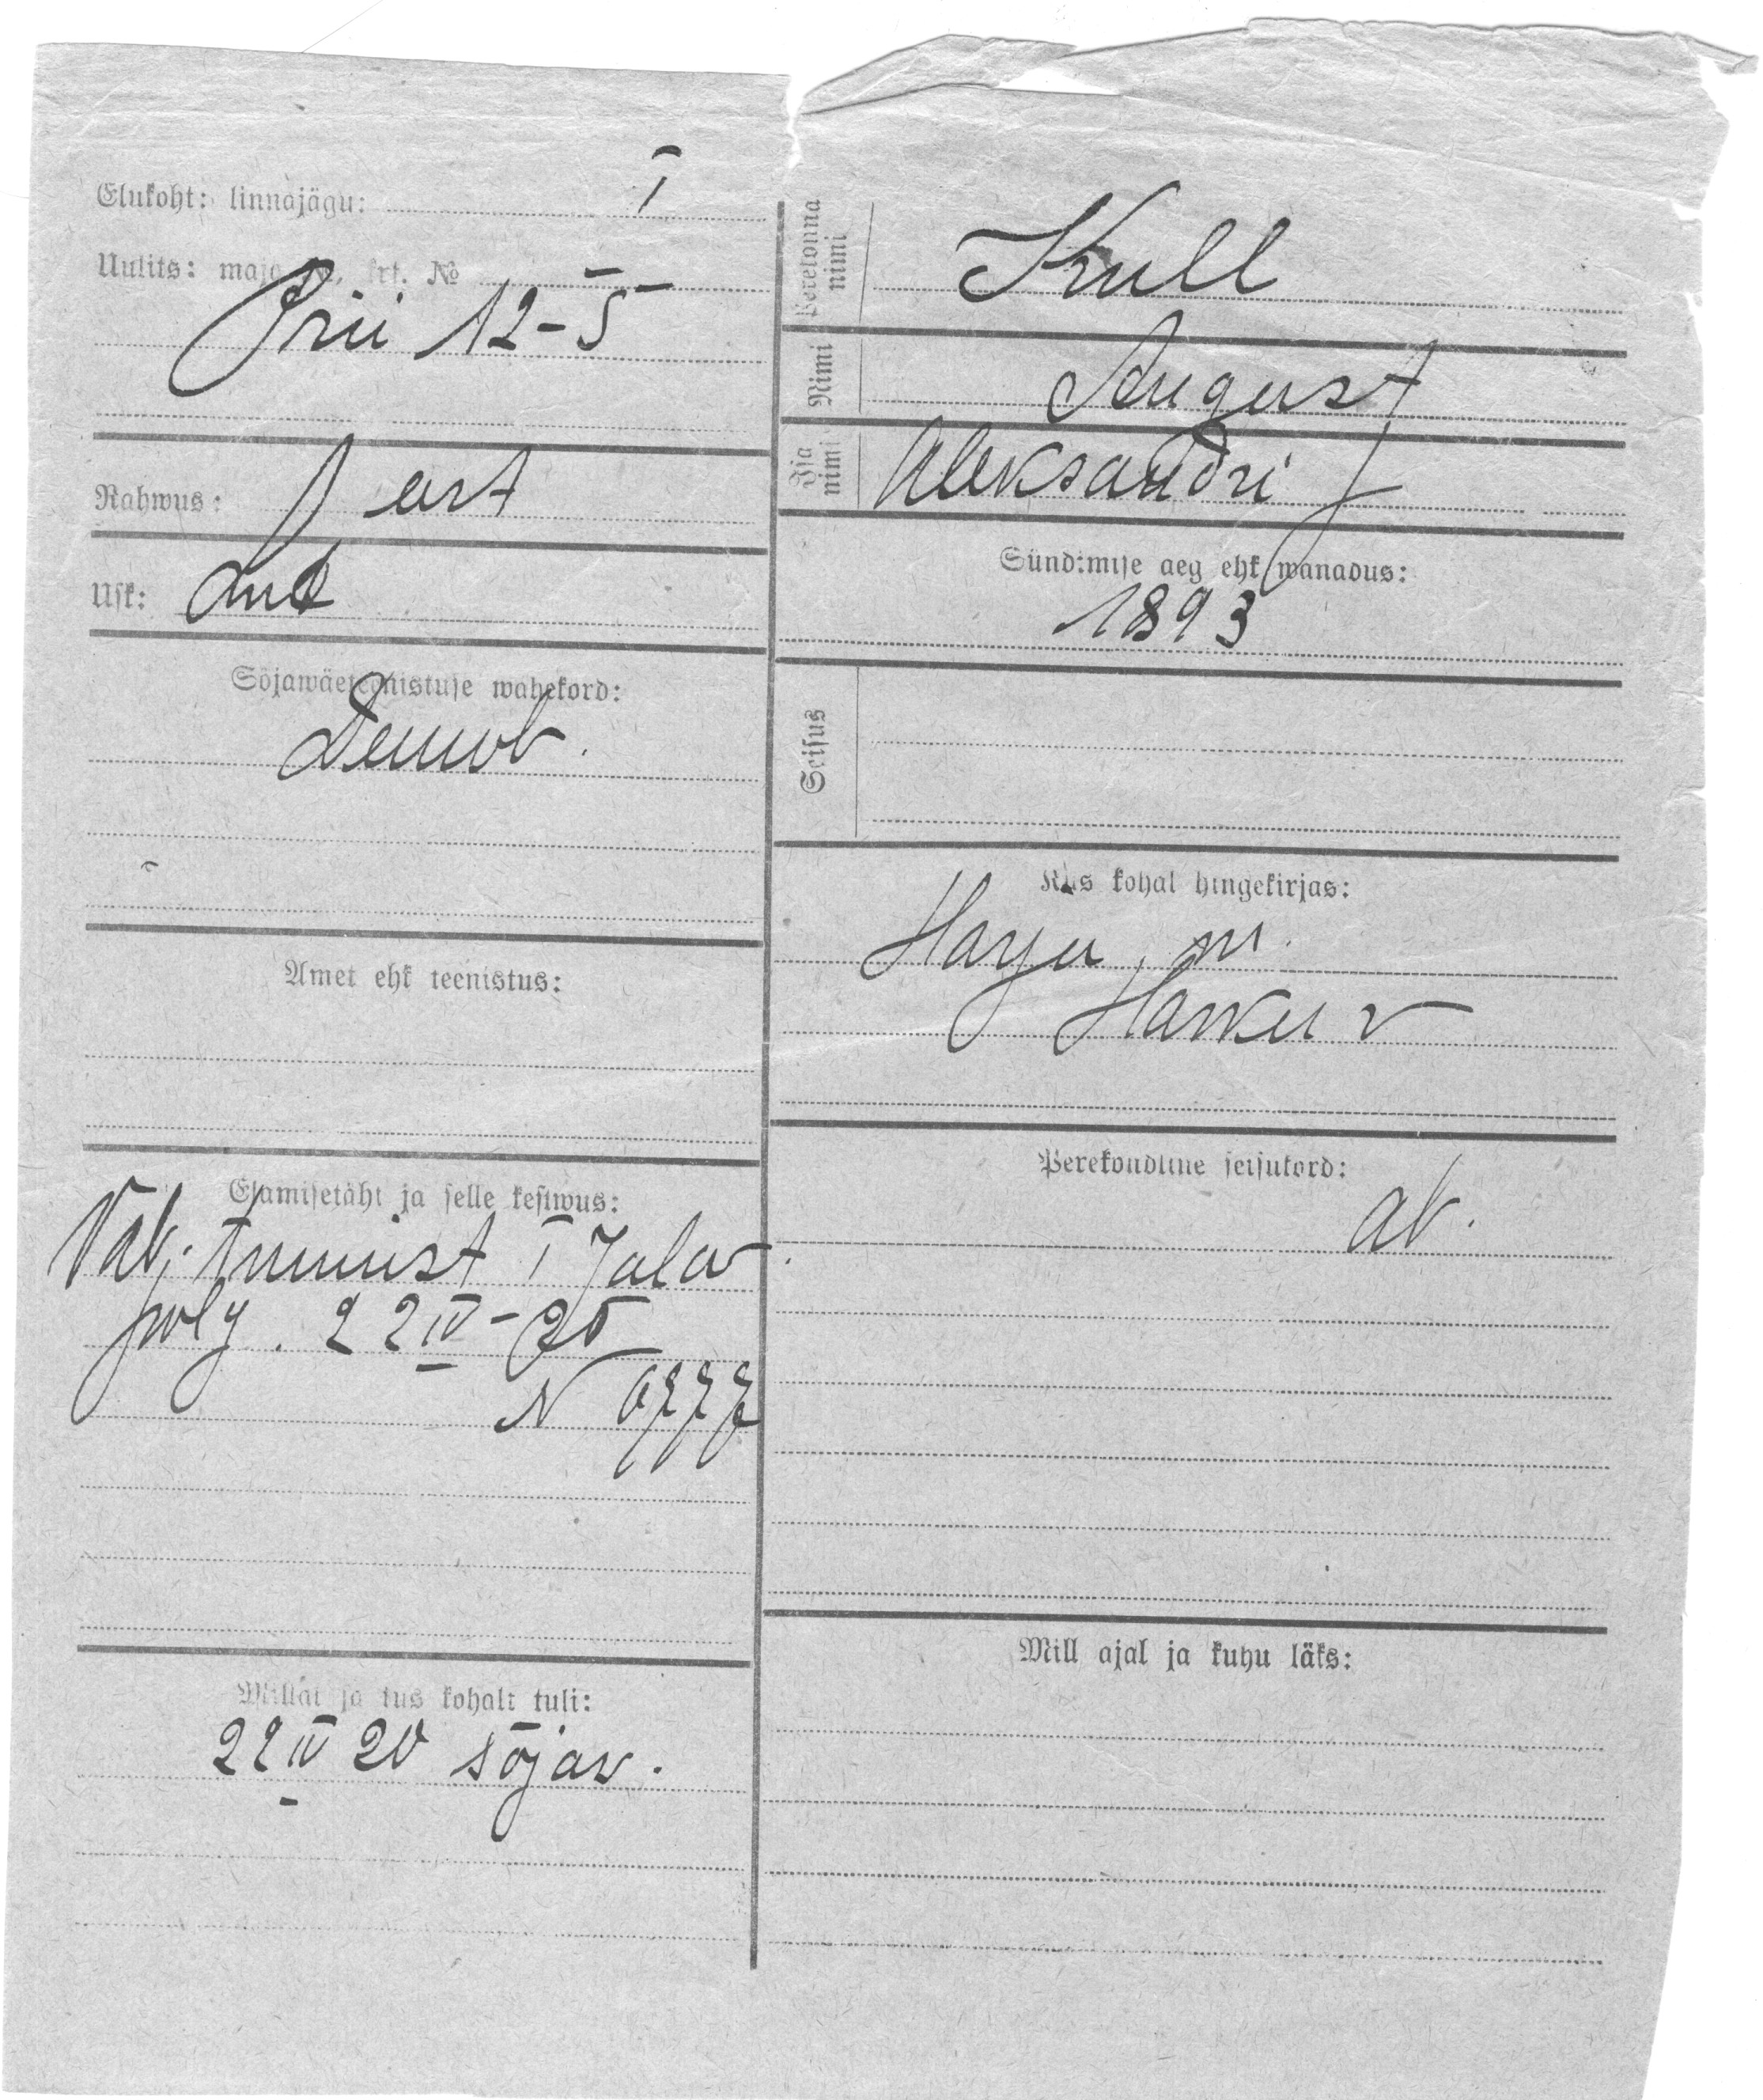 Elukoht: linnajägu: I
Uulits: maja №, krt. №
Prii 12-5
Rahwus: eest
Usk: Lut
Sõjawäeteenistuse wahekord:
Demob.
Amet ehk teenistus:
Elamisetäht ja selle kestwus:
Vab. tunnist I Jalav.
polg. 22 IV-20
N 6777
Millal ja kus kohalt tuli:
22 IV 20 sõjav.
Perekonna nimi Krull
Nimi August
Isa nimi Aleksandri
Sündimise aeg ehk wanadus:
1893
Seisus
Kus kohal hingekirjas:
Harju m.
Harku v
Perekondline seisukord:
ab.
Mill ajal ja kuhu läks: